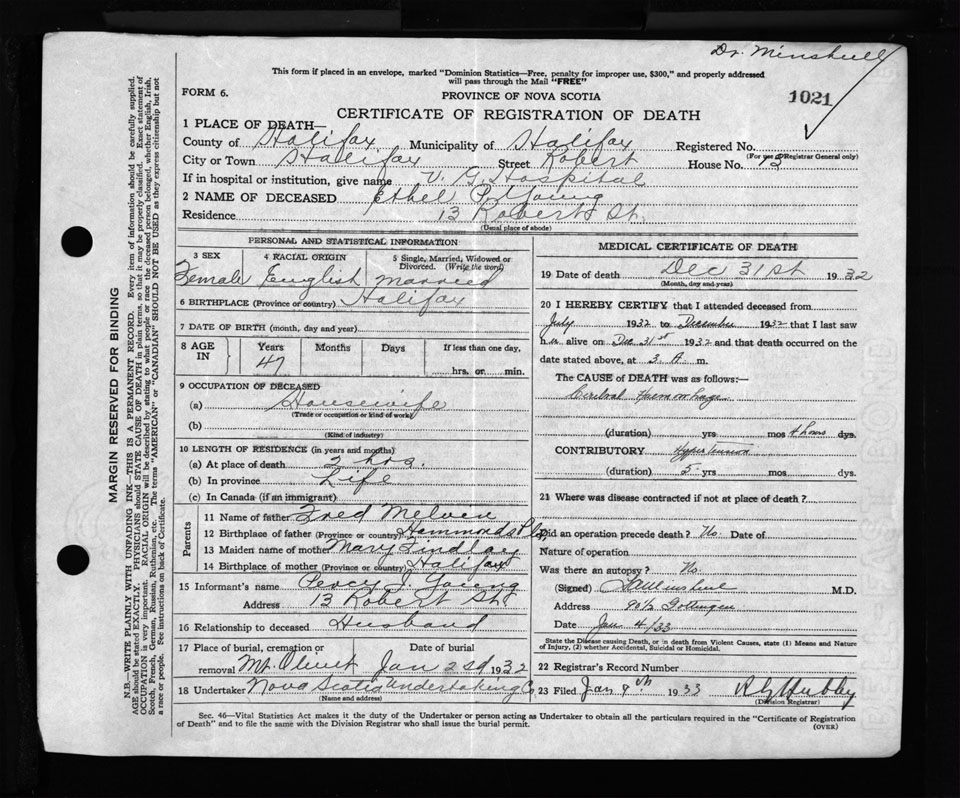 Dr. Minshull
This form if placed in an envelope, marked "Dominion Statistics—Free, penalty for improper use, $300," and properly addressed
will pass through the Mail "FREE"
FORM 6.
PROVINCE OF NOVA SCOTIA
1021
CERTIFICATE OF REGISTRATION OF DEATH
1 PLACE OF DEATH—
County of Halifax Municipality of Halifax Registered No.
(For use of Registrar General only)
City or Town Halifax Street Robert House No. 3
If in hospital or institution, give name V. G. Hospital
2 NAME OF DECEASED Ethel P. Young
Residence 13 Robert St.
(Usual place of abode)
PERSONAL AND STATISTICAL INFORMATION
3 SEX 4 RACIAL ORIGIN 5 Single, Married, Widowed or
Divorced. (Write the word)
Female English Married
6 BIRTHPLACE (Province or country) Halifax
7 DATE OF BIRTH (month, day and year)
8 AGE IN Years Months Days If less than one day,
47 hrs. or min.
9 OCCUPATION OF DECEASED
(a) Housewife
(Trade or occupation or kind of work)
(b)
(Kind of industry)
10 LENGTH OF RESIDENCE (in years and months)
(a) At place of death 2 hrs.
(b) In province Life
(c) In Canada (if an immigrant)
Parents
11 Name of father Fred Melvin
12 Birthplace of father (Province or country) Hammonds Pls
13 Maiden name of mother Mary Findlay
14 Birthplace of mother (Province or country) Halifax
15 Informant's name Percy J. Young
Address 13 Robert St
16 Relationship to deceased Husband
17 Place of burial, cremation or Date of burial
removal Mt. Olivet Jan 2nd 1932
18 Undertaker Nova Scotia Undertaking Co
(Name and address)
MEDICAL CERTIFICATE OF DEATH
19 Date of death Dec 31st 1932
(Month, day and year)
20 I HEREBY CERTIFY that I attended deceased from
July 1932 to December 1932 that I last saw
her alive on Dec 31st 1932 and that death occurred on the
date stated above, at 3 A m.
The CAUSE of DEATH was as follows:—
Cerebral Haemorrhage
(duration) yrs mos 4 hours dys.
CONTRIBUTORY Hypertension
(duration) 5 yrs mos dys.
21 Where was disease contracted if not at place of death?
Did an operation precede death? No. Date of
Nature of operation
Was there an autopsy? No.
(Signed) Minshull M.D.
Address 90½ Gottingen
Date Jan 4/33
State the Disease causing Death, or in death from Violent Causes, state (1) Means and Nature
of Injury, (2) whether Accidental, Suicidal or Homicidal.
22 Registrar's Record Number
23 Filed Jan 9th 1933 Hubby
(Division Registrar)
Sec. 46—Vital Statistics Act makes it the duty of the Undertaker or person acting as Undertaker to obtain all the particulars required in the "Certificate of Registration
of Death" and to file the same with the Division Registrar who shall issue the burial permit.
(OVER)
MARGIN RESERVED FOR BINDING
N.B.—WRITE PLAINLY WITH UNFADING INK—THIS IS A PERMANENT RECORD. Every item of information should be carefully supplied.
AGE should be stated EXACTLY. PHYSICIANS should STATE CAUSE OF DEATH in plain terms, so that it may be properly classified. Exact statement of
OCCUPATION is very important. RACIAL ORIGIN will be described by stating to what people or race the deceased person belonged, whether English, Irish,
Scotch, French, German, Russian, Ruthenian, etc. The terms "AMERICAN" or "CANADIAN" SHOULD NOT BE USED as they express citizenship but not
a race or people. See instructions on back of Certificate.